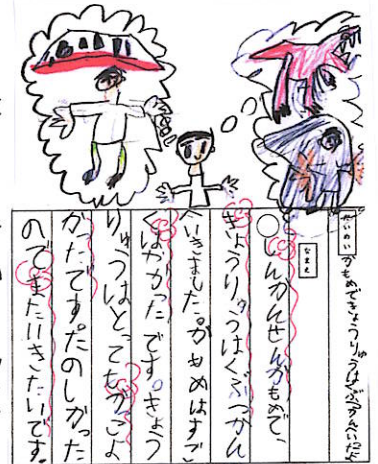 だいめい
かもめできょうりゅうはくぶつかんいたよ
なまえ
○しんかんせんかもめで、
きょうりゅうはくぶつかん
へいきました。かもめはすご
くはやかったです。きょう
りゅうはとってもかっこよ
かったです。たのしかった
のでまたいきたいです。